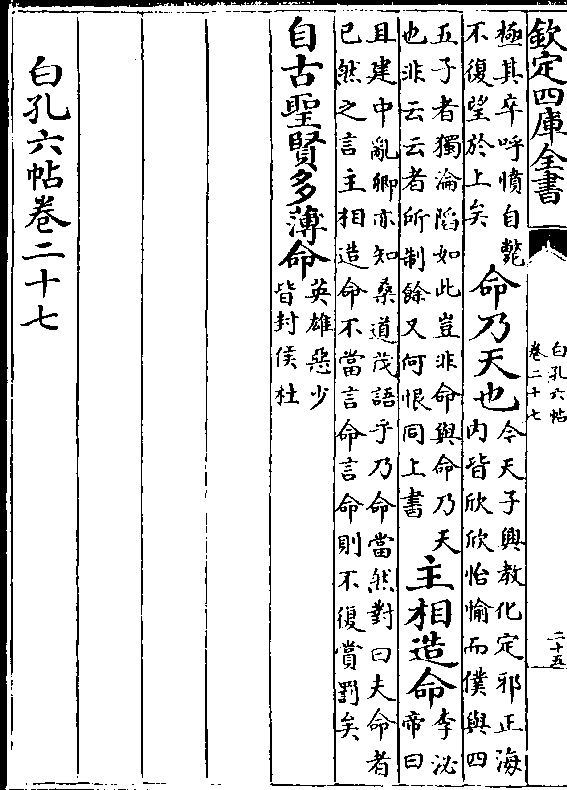 欽定四庫全書
白孔六帖
卷二十七
二十五
極其卒呼憤自斃
不復望於上矣
命乃天也
今天子興教化定邪正海
内皆欣欣怡愉而僕與四
五子者獨淪陷如此豈非命與命乃天
也非云云者所制餘又何恨同上書
主相造命
李泌
帝曰
且建中亂卿亦知桑道茂語乎乃命當然對曰夫命者
已然之言主相造命不當言命言命則不復賞罰矣
自古聖賢多薄命
英雄惡少
皆封侯杜
白孔六帖卷二十七